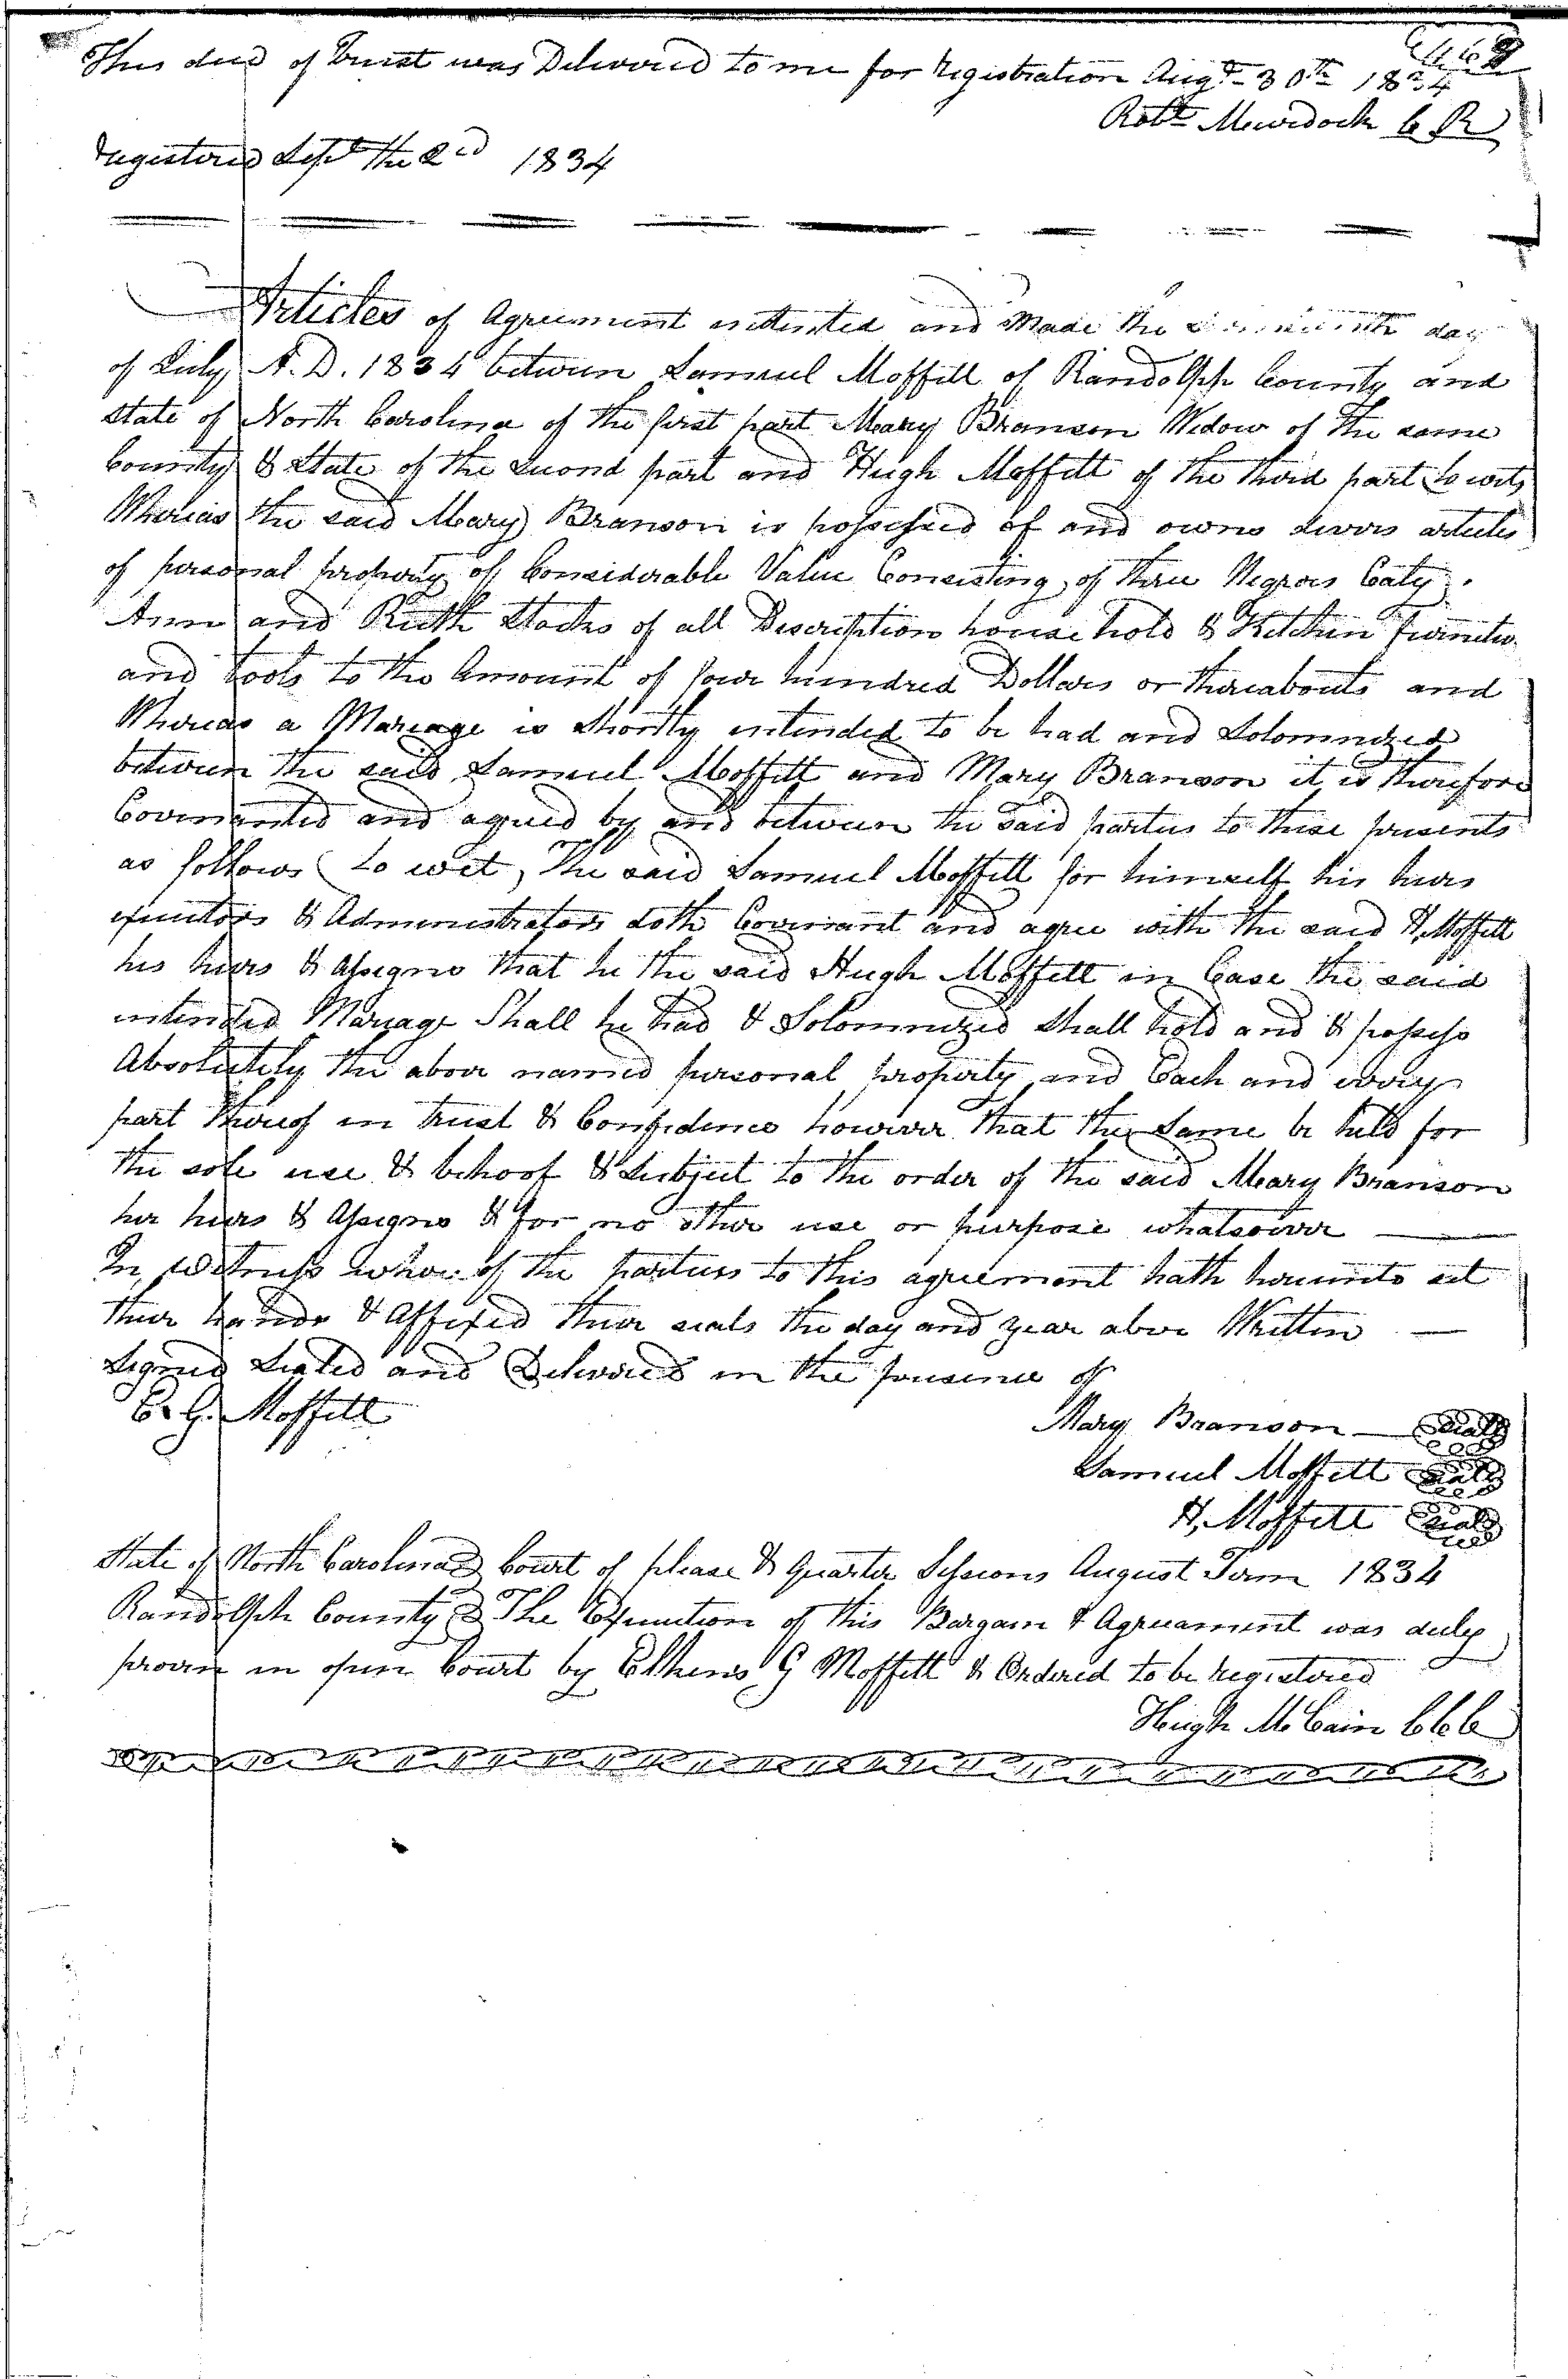 This deed of trust was Delivered to me for Registration Augt 30th 1834
Robt Murdock C R
Registered Sept the 2nd 1834
Articles of Agreement indented and Made the day
of July A. D. 1834 between Samuel Moffitt of Randolph County and
State of North Carolina of the first part Mary Branson Widow of the same
County & State of the Second part and Hugh Moffitt of the third part to wit,
Whereas the said Mary Branson is possessed of and owns divers articles
of personal property of Considerable Value Consisting of three Negroes Caty
Ann and Ruth Stocks of all Description house hold & Kitchen furniture
and tools to the Amount of four hundred Dollars or thereabouts and
Whereas a Mariage is Shortly intended to be had and Solomnized
between the said Samuel Moffitt and Mary Branson it is therefore
Covenanted and agreed by and between the said parties to these presents
as follows to wit, the said Samuel Moffitt for himself his heirs
executors & Administrators doth Covenant and agree with the said H. Moffitt
his heirs & Assigns that he the said Hugh Moffitt in Case the said
intended Mariage Shall be had & Solomnized Shall hold and & possess
Absolutely the above named personal property and Each and every
part thereof in trust & Confidence however that the Same be held for
the sole use & behoof & Subject to the order of the said Mary Branson
her heirs & Assigns & for no other use or purpose whatsoever
In Witness whereof the parties to this agreement hath hereunto set
their hands & Affixed their seals the day and year above Written
Signed Sealed and Delivered in the presence of
E. G. Moffitt
Mary Branson Seal
Samuel Moffitt Seal
H. Moffitt Seal
State of North Carolina } Court of please & Quarter Sessions August Term 1834
Randolph County } The Execution of this Bargain & Agreament was duly
proven in open Court by G Moffitt & Ordered to be registered
Hugh McCain CCC